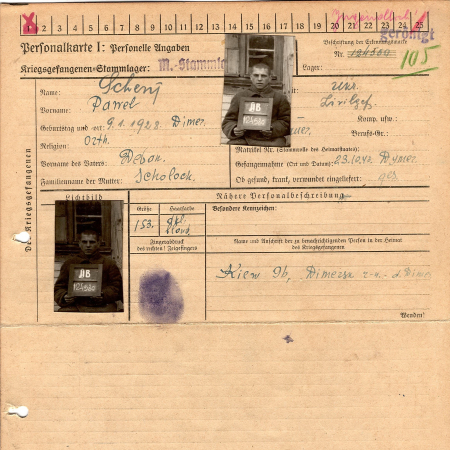 X 2 3 4 5 6 7 8 9 10 11 12 13 14 15 16 17 18 19 20 21 22 23 24 25
Personalkarte I: Personelle Angaben
Beschriftung der Erkennungsmarke
Nr. 124580
105
Kriegsgefangenen-Stammlager: M.-Stammla
Lager:
Name: Schenj
Vorname: Pawel
Geburtstag und -ort: 9.1.1923 Dimer
Religion: Orth.
Vorname des Vaters:
Familienname der Mutter: Scholoch
Der Kriegsgefangenen
AB
124580
ukr.
Komp. usw.:
Berufs-Gr.:
Matrikel Nr. (Stammrolle des Heimatstaates):
Gefangennahme (Ort und Datum): 23.10.42 Dymer
Ob gesund, krank, verwundet eingeliefert: ges
Nähere Personalbeschreibung
Lichtbild
Größe
Haarfarbe
Besondere Kennzeichen:
153.
Fingerabdruck
des rechten! Zeigefingers
Name und Anschrift der zu benachrichtigenden Person in der Heimat
des Kriegsgefangenen
AB
124580
Kiew Ob, Dimersk
Wenden!